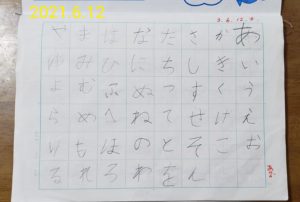 2021.6.12
3.6.12
あいうえお
かきくけこ
さしすせそん
たちつてとを
なにぬねのわ
はひふへほろ
まみむめもれ
やゆよらりる